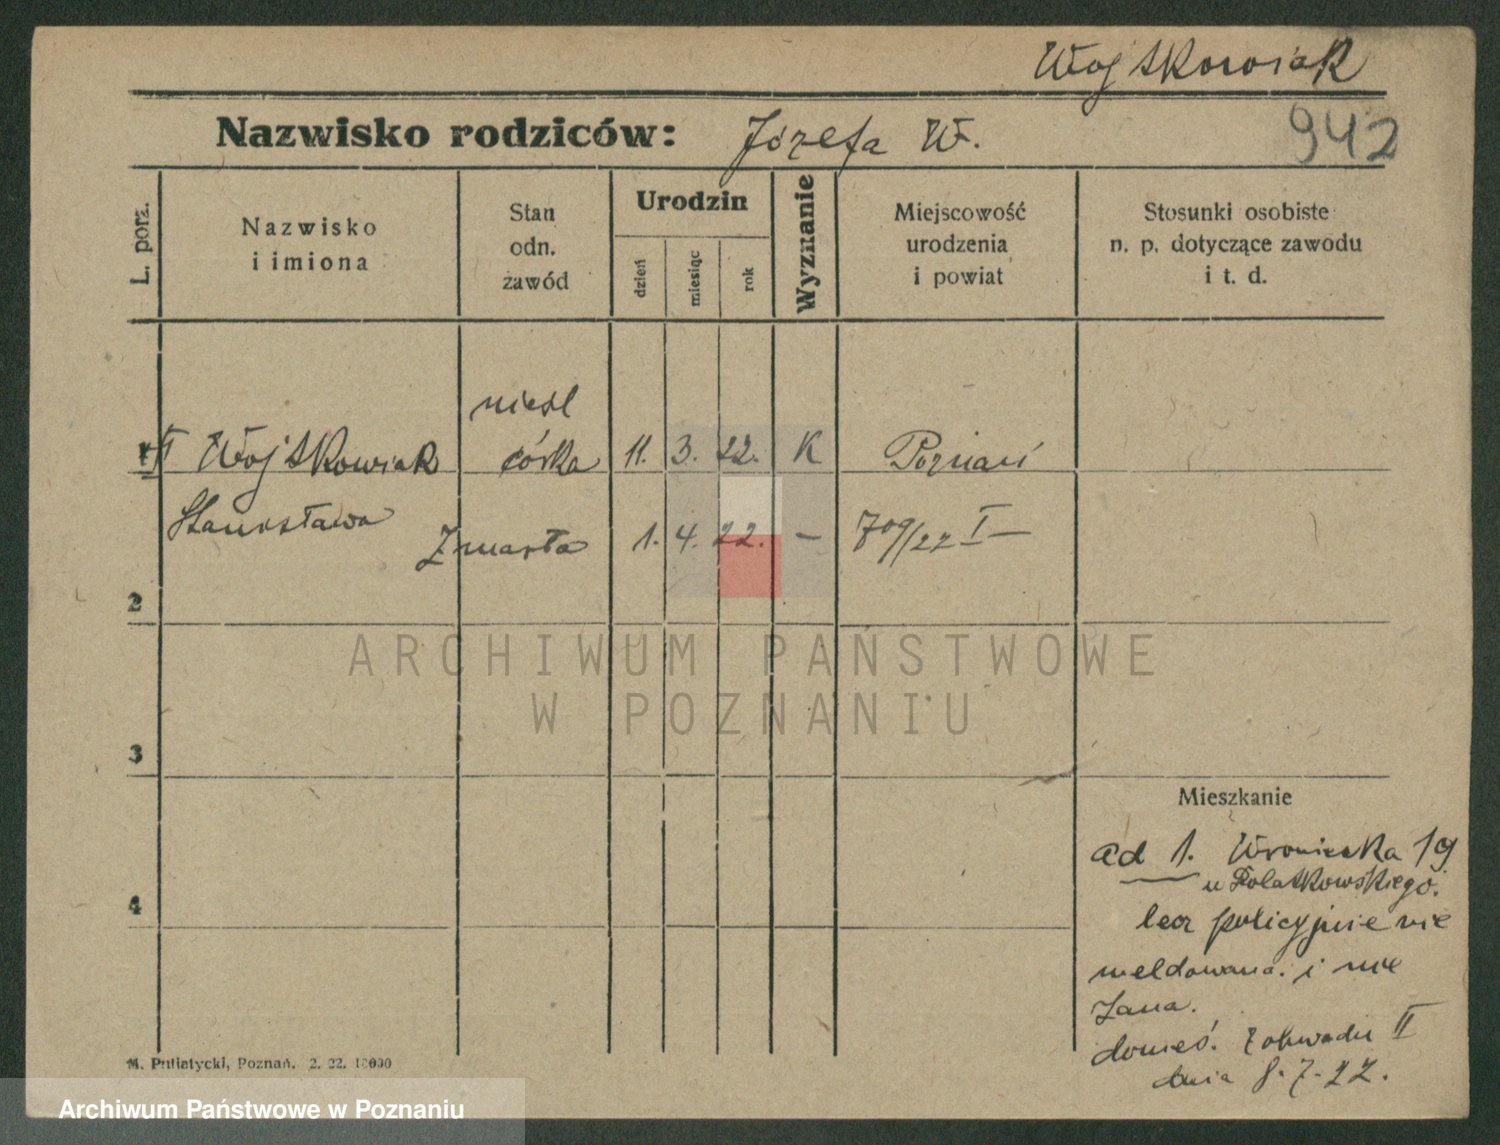 Wojtkowiak
Nazwisko rodziców: Józefa W. 942
L. porz.
Nazwisko
i imiona
Stan
odn.
zawód
Urodzin
dzień
miesiąc
rok
Wyznanie
Miejscowość
urodzenia
i powiat
Stosunki osobiste
n. p. dotyczące zawodu
i t. d.
nieśl
1 Wojtkowiak córka 11. 3. 22. K Poznań
Stanisława
Zmarła 1. 4. 22. — 709/22 I —
2
ARCHIWUM PAŃSTWOWE
W POZNANIU
3
Mieszkanie
ad 1. Wroniecka 19
u Polatkowskiego.
4
lecz policyjnie nie
meldowana. i nie
zana.
donieś. z obwodu II
dnia 8.7.22.
M. Putiatycki, Poznań. 2. 22. 10000
Archiwum Państwowe w Poznaniu